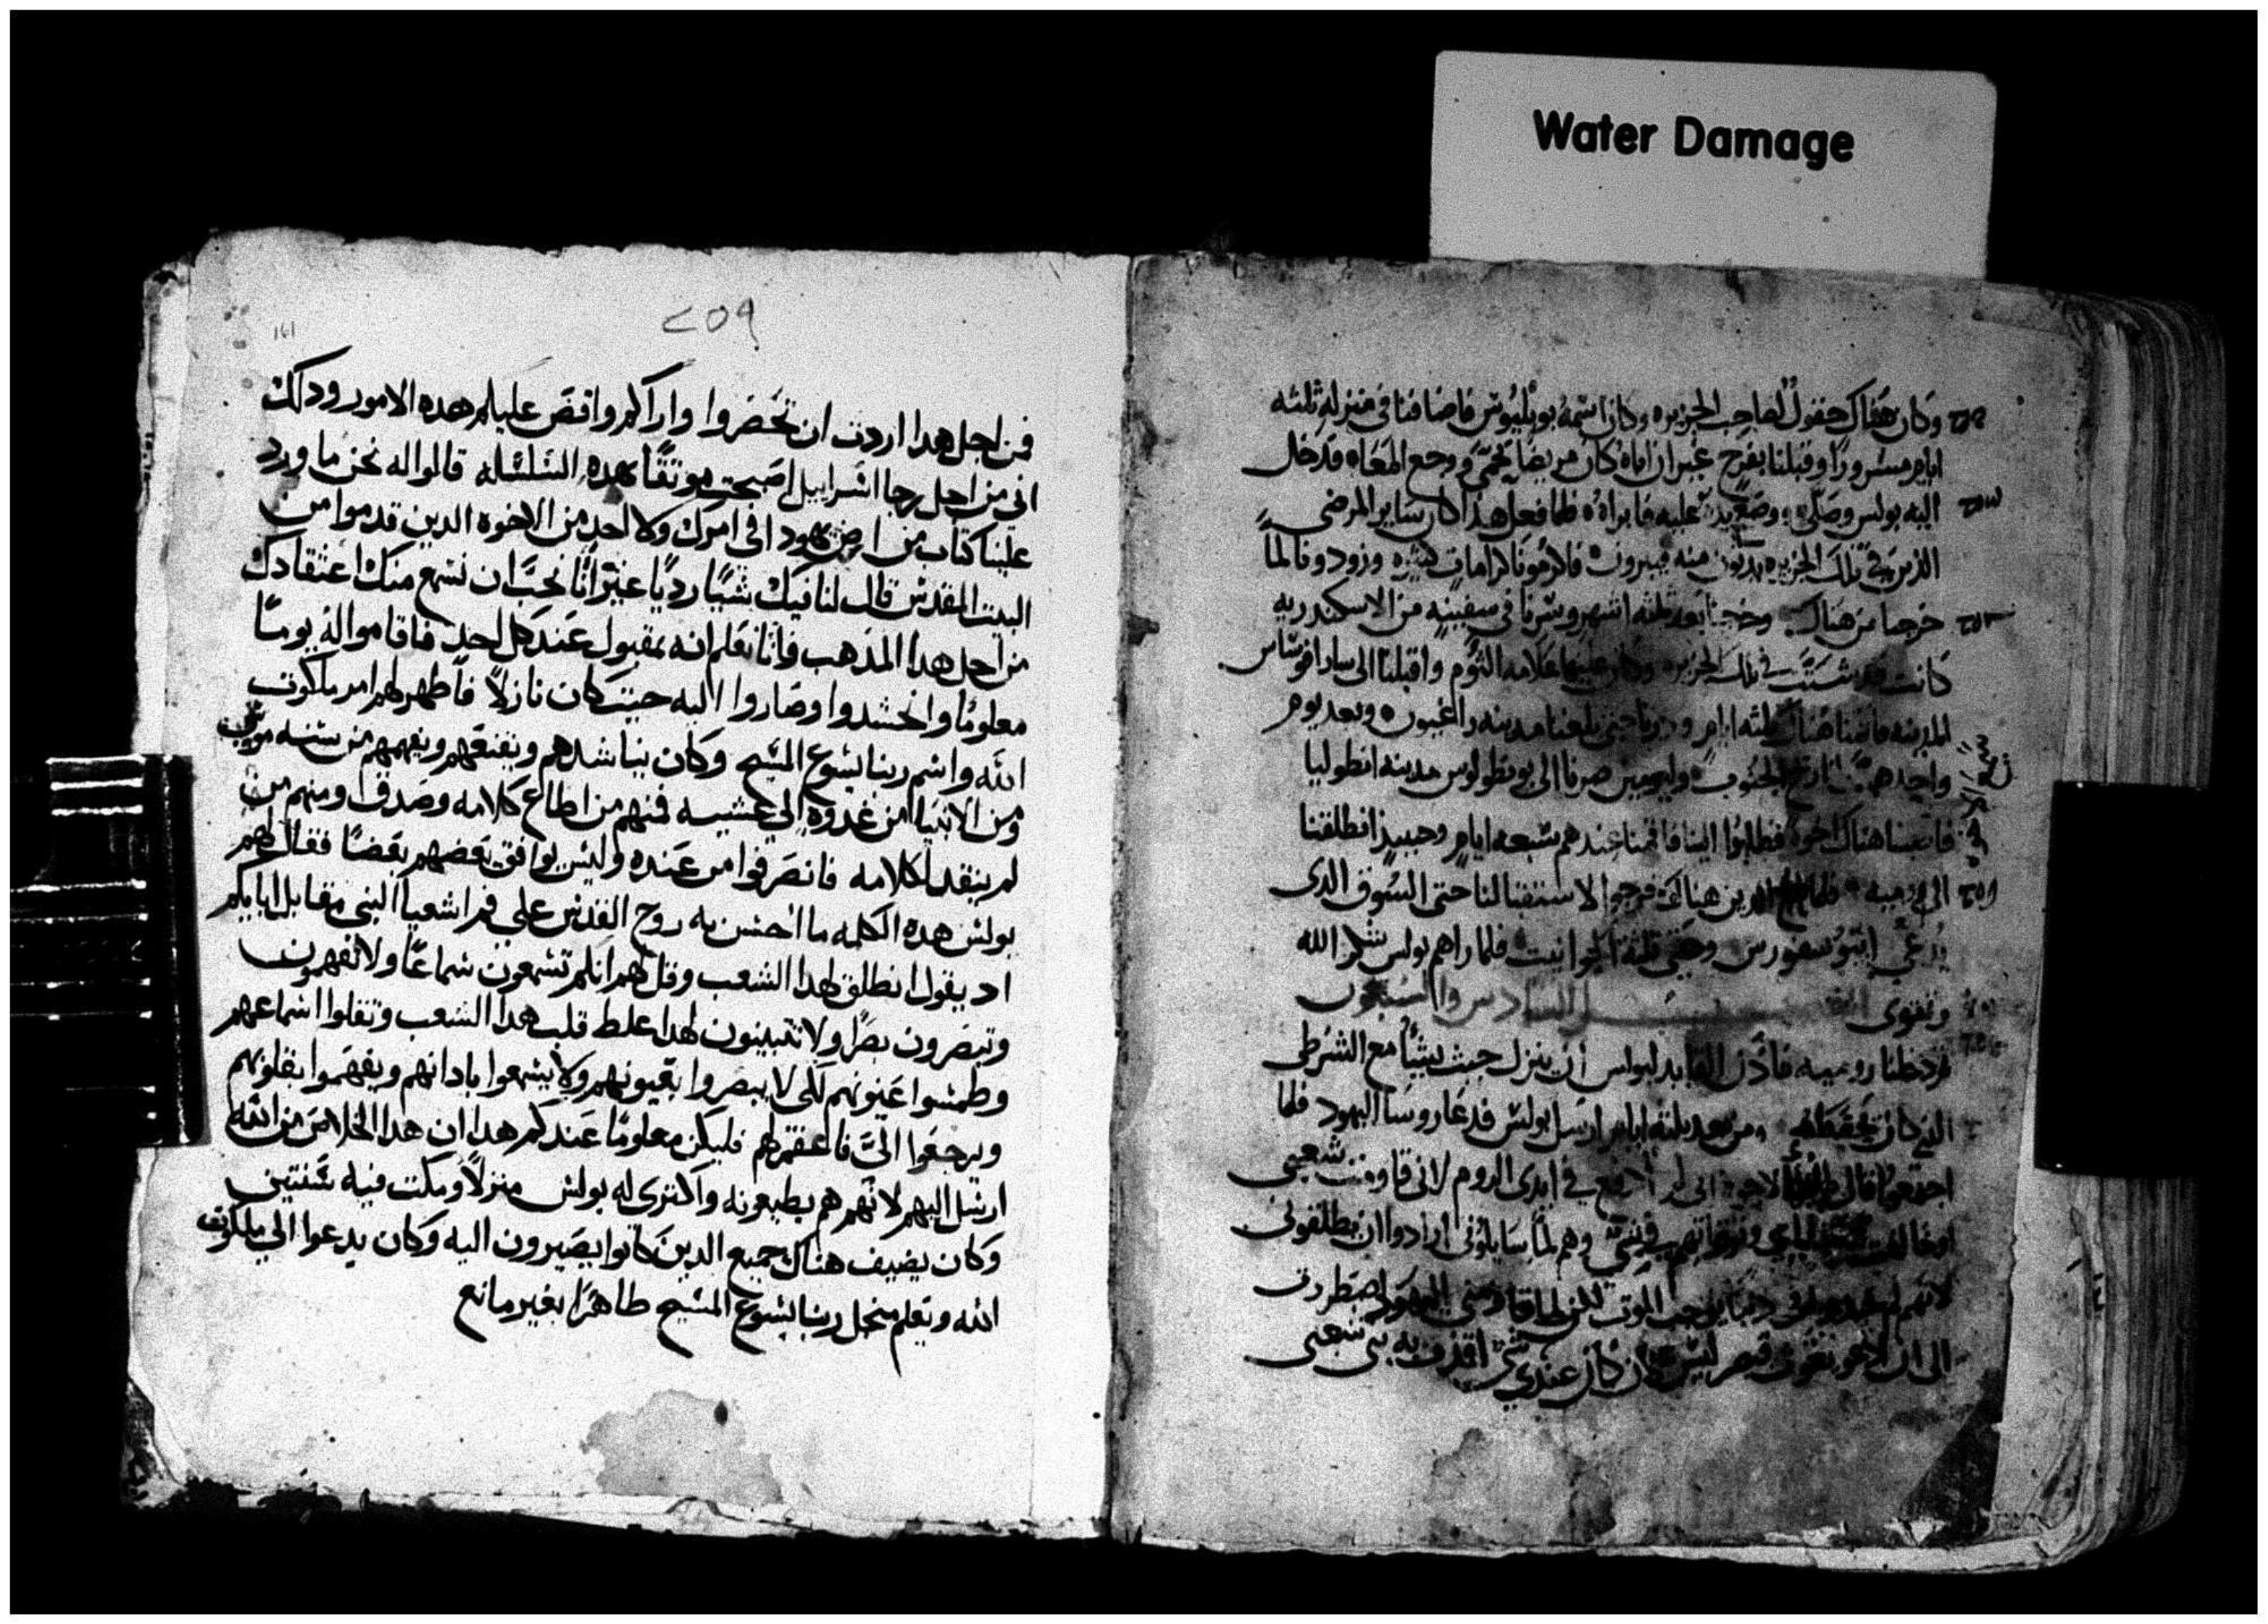 Water Damage
وكان هناك حقول لصاحب الجزيره وكان اسمه بوبليوس فاضافنا في منزله ثلثه
ايام مسرورا وقبلنا بفرح غير ان اباه كان مريضا بحمى ووجع المعاه فدخل
اليه بولس وصلى ووضع يده عليه فابراه فلما فعل هذا كان ساير المرضى
الذين في تلك الجزيره يدنون منه فيبرون فاكرمونا كرامات كثيره وزودونا لما
خرجنا من هناك وخرجنا بعد ثلثه اشهر وسرنا في سفينه من الاسكندريه
كانت قد شتت في تلك الجزيره وكان عليها علامه التوم واقبلنا الى ساراقوساس
المدينه فاقمنا هناك ثلثه ايام ودرنا حتى بلغنا مدينه راغيون وبعد يوم
واحد هبت ريح الجنوب وليومين صرنا الى بوطولوس مدينه انطوليا
فاصبنا هناك اخوة فطلبوا الينا فاقمنا عندهم سبعه ايام وحينيذ انطلقنا
الى روميه فلما الذين هناك خرجوا لاستقبالنا حتى السوق الذى
يدعي ابيوسفورس وحتى ثلثة الحوانيت فلما راهم بولس شكر الله
وتقوى الفصل السادس والسبعون
فدخلنا روميه فاذن القايد لبولس ان ينزل حيث يشا مع الشرطى
الذي كان يحفظه ومن بعد ثلثه ايام ارسل بولس فدعا روسا اليهود فلما
اجتمعوا قال الاخوة انى لم اقع في ايدى الروم لانى قاومت شعبى
او خالفت ابايي وهم لما سايلونى ارادوا ان يطلقونى
لانهم لم يجدوا ذنبا يوجب الموت اليهود اضطررت
الى ان ادعو بغوث قيصر ليس كان عندي شي اقذف به بني شعبى
٢٥٩
161
فمن اجل هدا اردت ان تحضروا واراكم واقص عليكم هده الامور ودلك
اني من اجل رجا اسراييل اصبحت موتقا بهده السلسله قالوا له نحن ما ورد
علينا كتاب من ارض يهودا في امرك ولا احد من الاخوه الدين قدموا من
البيت المقدس قال لنا فيك شيا رديا غير انا نحب ان نسمع منك اعتقادك
من اجل هدا المدهب فانا نعلم انه بمقبول عند كل احد فاقاموا له يوما
معلوما واحتشدوا وصاروا اليه حيت كان نازلا فاظهر لهم امر ملكوت
الله واسم ربنا يسوع المسيح وكان يناشدهم ويقنعهم ويفهمهم من سنه موسى
ومن الانبيا من غدوه الى عشيه فمنهم من اطاع كلامه وصدق ومنهم من
لم ينقد لكلامه فانصرفوا من عنده وليس يوافق بعضهم بعضا فقال لهم
بولس هده الكلمه ما احسن به روح القدس على فم اشعيا النبى مقابل ابايكم
اد يقول انطلق لهدا الشعب وقل لهم انكم تسمعون سماعا ولا تفهمون
وتبصرون بصرا ولا تتبينون لهدا غلظ قلب هدا الشعب وتقلوا اسماعهم
وطمسوا عيونهم لكى لا يبصروا بعيونهم ولا يسمعوا بادانهم ويفهموا بقلوبهم
ويرجعوا الى فاغفر لهم فليكن معلوما عندكم هدا ان هدا الخلاص من الله
ارسل اليهم لانهم هم يطيعونه واكترى له بولس منزلا ومكت فيه سنتين
وكان يضيف هناك جميع الدين كانوا يصيرون اليه وكان يدعوا الى ملكوت
الله ويعلم من اجل ربنا يسوع المسيح ظاهرا بغير مانع